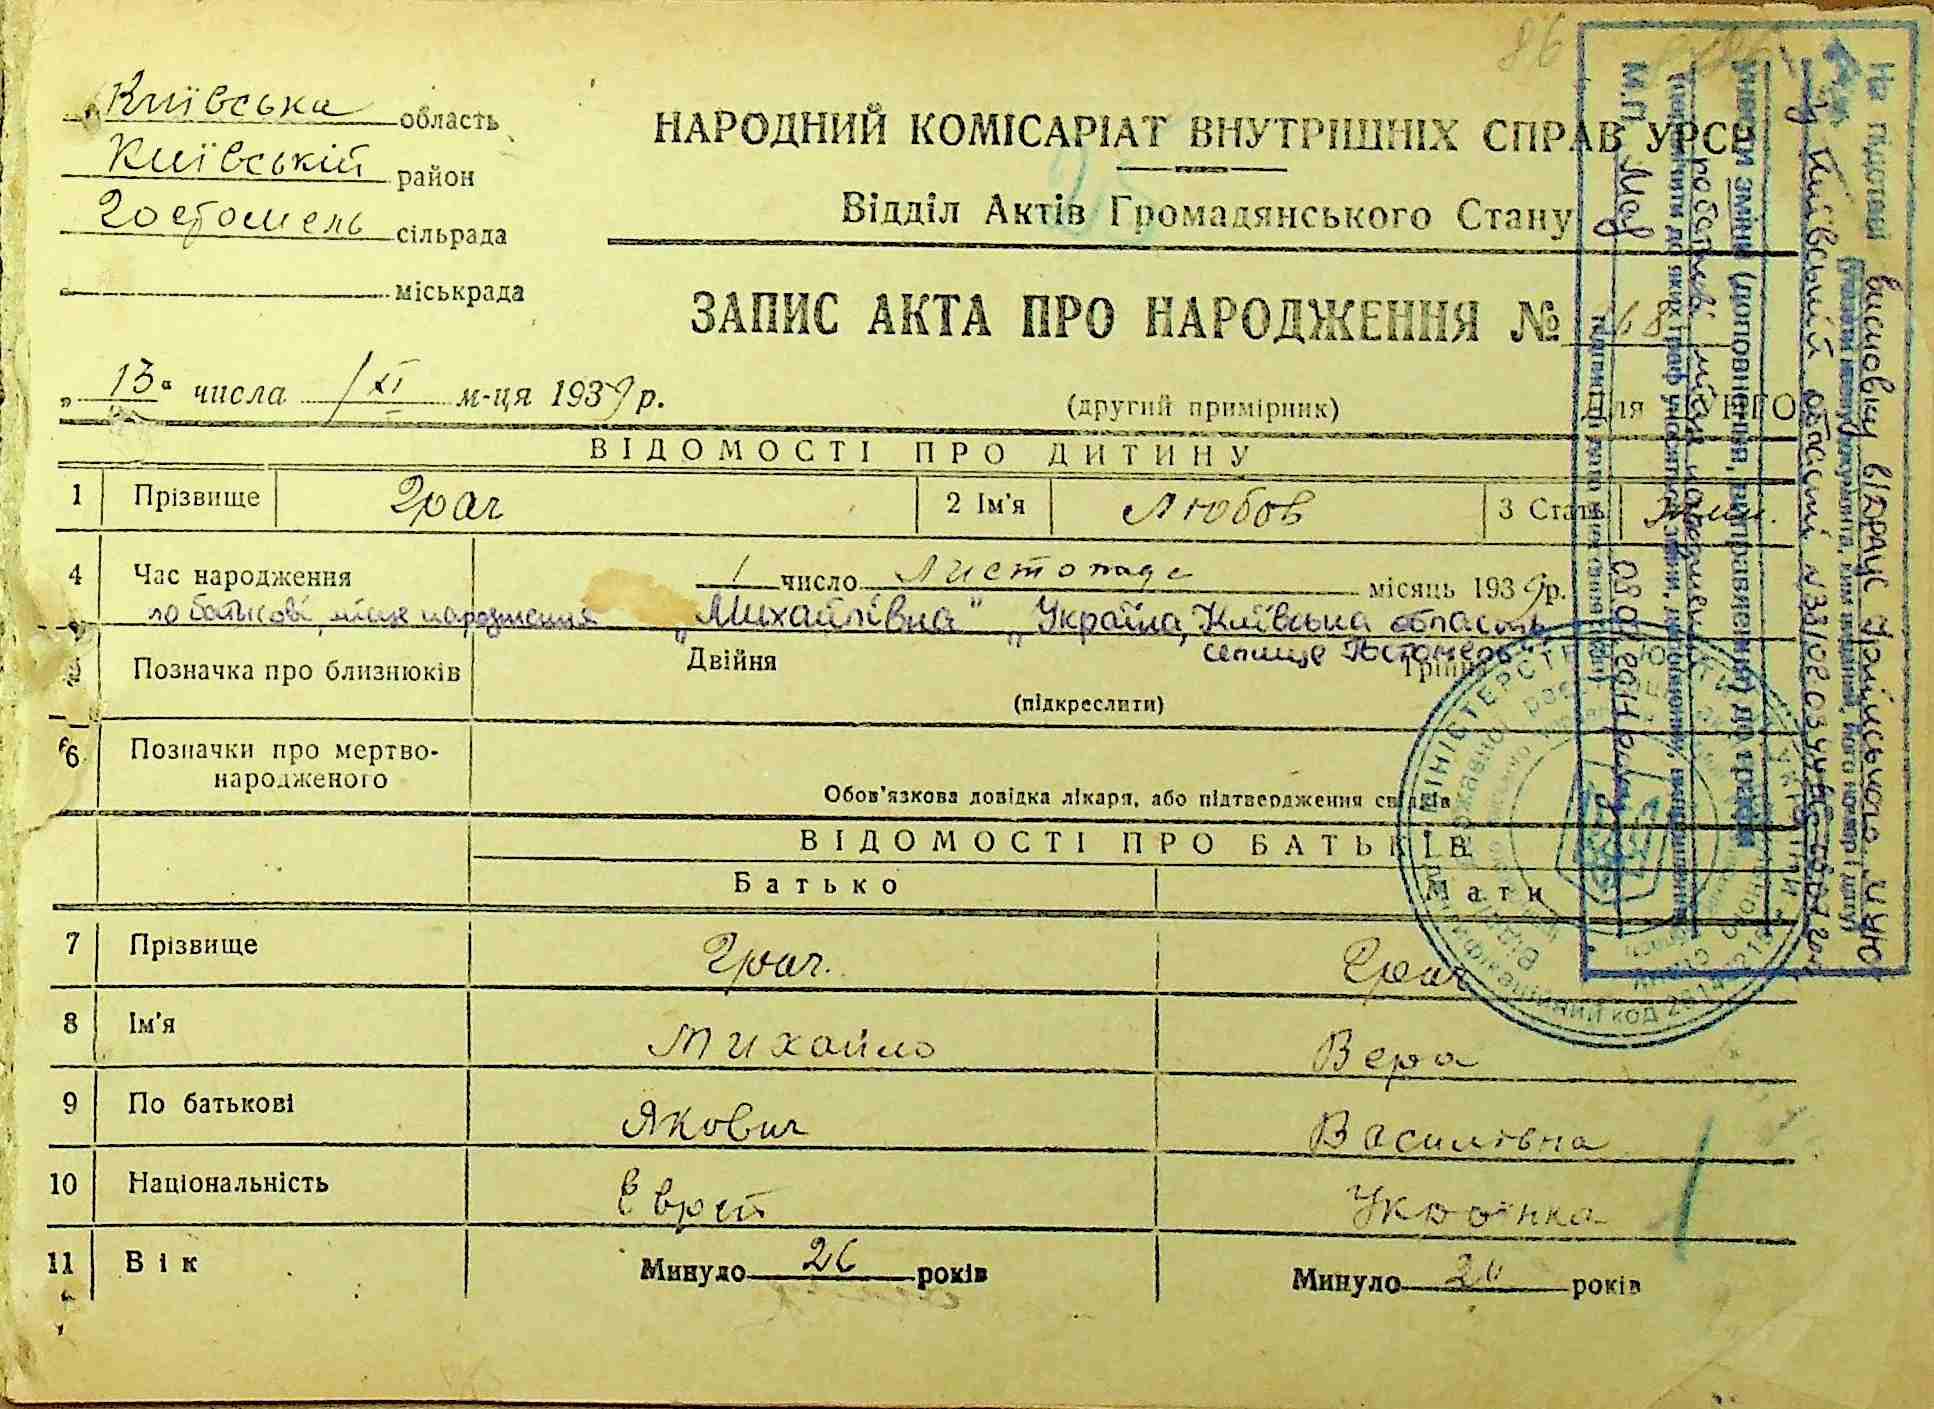 86
Київська область
Київській район
Гостомель сільрада
міськрада
НАРОДНИЙ КОМІСАРІАТ ВНУТРІШНІХ СПРАВ УРСР
Відділ Актів Громадянського Стану
ЗАПИС АКТА ПРО НАРОДЖЕННЯ № 68
„ 13 " числа XI м-ця 1939 р.
(другий примірник)
Для
ВІДОМОСТІ ПРО ДИТИНУ
1 Прізвище Грач 2 Ім'я Любов 3 Стать
4 Час народження 1 число Листопада місяць 1939 р.
по батькові, місце народження „Михайлівна" „Україна, Київська область,
селище Гостомель"
Позначка про близнюків Двійня Трійня
(підкреслити)
6 Позначки про мертво-
народженого
Обов'язкова довідка лікаря, або підтвердження свідків
ВІДОМОСТІ ПРО БАТЬКІВ
Батько Мати
7 Прізвище Грач. Грач
8 Ім'я Михайло Вера
9 По батькові Якович Василівна
10 Національність Еврей Українка
11 Вік Минуло 26 років Минуло років
На підставі висновку відрацс
у Київській області
внесені зміни (доповнення, виправлення) до графи
по батькові місце народження
М.П.
МІНІСТЕРСТВО ЮСТИЦІЇ УКРАЇНИ
ідентифікаційний код